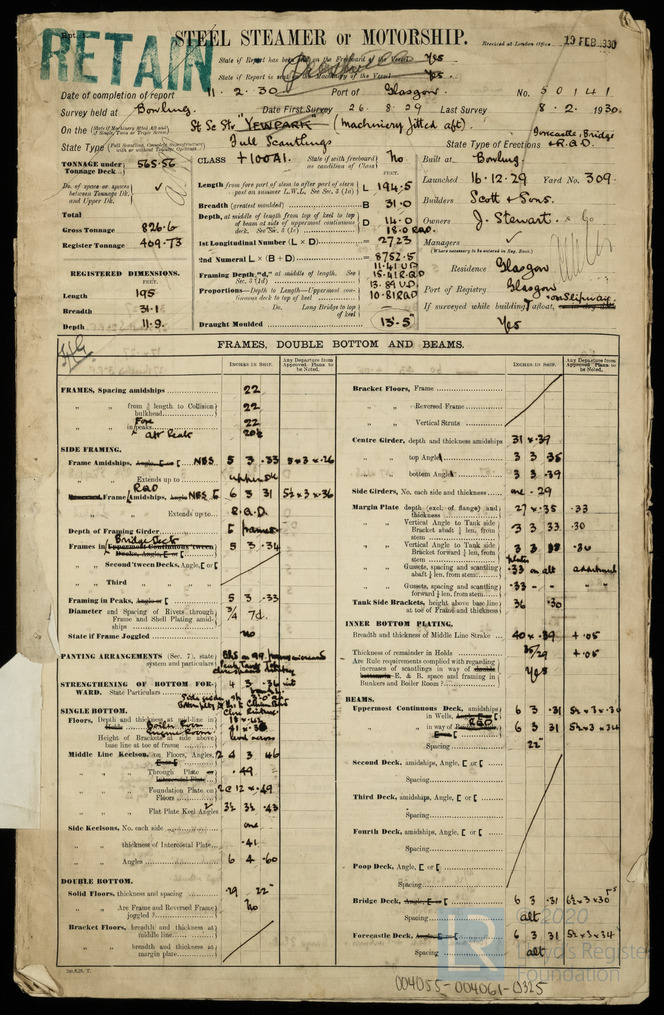 RETAIN
STEEL STEAMER OR MOTORSHIP.
Received at London Office 19 FEB 1930
State of Report has been sent on the Freeboard of the Vessel Yes
State of Report is sent on the Machinery of the Vessel Yes
Date of completion of report 11 . 2 . 30 Port of Glasgow No. 50141
Survey held at Bowling. Date First Survey 26 . 8 . 29 Last Survey 8 . 2 . 1930.
On the St Sc Str "YEWPARK" (machinery fitted aft).
State Type Full Scantlings State Type of Erections Forecastle, Bridge + R.Q.D.
TONNAGE under Tonnage Deck 565.56
CLASS +100A1. State if with freeboard as condition of Class No
Built at Bowling.
Launched 16.12.29 Yard No. 309.
Builders Scott & Sons.
Owners J. Stewart & Co
Managers
(Where necessary to be entered in Reg. Book.)
Residence Glasgow
Port of Registry Glasgow
If surveyed while building, afloat, on slipway.
Yes
Do. of space or spaces between Tonnage Dk. and Upper Dk.
Total
Gross Tonnage 826.6
Register Tonnage 409.73
REGISTERED DIMENSIONS.
FEET.
Length 195
Breadth 31.1
Depth 11.9.
Length from fore part of stem to after part of stern post on summer L.W.L. See Sec. 3 (1a) L 194.5
Breadth (greatest moulded) B 31.0
Depth, at middle of length from top of keel to top of beam at side of uppermost continuous deck. See Sec. 3 (1c) D 14.0
18.0 RQD.
1st Longitudinal Number (L × D) = 2723
2nd Numeral L × (B + D) = 8752.5
Framing Depth, "d," at middle of length. See Sec. 3 (1d) 11.41 U.D
15.41 RQD
Proportions—Depth to Length—Uppermost continuous deck to top of keel 13.89 U.D.
10.81 RQD
Do. Long Bridge to top of keel
Draught Moulded 13'.5"
FRAMES, DOUBLE BOTTOM AND BEAMS.
INCHES IN SHIP. Any Departure from Approved Plans to be Noted. INCHES IN SHIP. Any Departure from Approved Plans to be Noted.
FRAMES, Spacing amidships 22
" " from ⅕ length to Collision bulkhead 22
" " in peaks Fore 22
Aft Peak
SIDE FRAMING.
Frame Amidships, NBS 5 3 .33 5×3×.26
" " Extends up to upper dk
Frame Amidships, RQD NBS 6 3 31 5½×3×.36
" " Extends up to R.Q.D.
Depth of Framing Girder 5 frames
Frames in Bridge Deck 5 3 .34
" " Second 'tween Decks, Angle, [ or [
" " Third " "
Framing in Peaks, 5 3 .33
Diameter and Spacing of Rivets through Frame and Shell Plating amidships 3/4 7d.
State if Frame Joggled no
PANTING ARRANGEMENTS (Sec. 7), state system and particulars
STRENGTHENING OF BOTTOM FORWARD. State Particulars
SINGLE BOTTOM.
Floors, Depth and thickness at mid-line in Boiler Room
Engine Room
Height of Brackets at side above base line at toe of frame level across
Middle Line Keelson, on Floors, Angles, 2 4 3 46
" " Through Plate .49
" " Foundation Plate on Floors 2@12 × .49
" " Flat Plate Keel Angles 2 3½ 3½ .43
Side Keelsons, No. each side one
" " thickness of Intercostal Plate .41
" " Angles 6 4 .60
DOUBLE BOTTOM.
Solid Floors, thickness and spacing .29 22"
" " Are Frame and Reversed Frame joggled? No
Bracket Floors, breadth and thickness at middle line
" " breadth and thickness at margin plate
Bracket Floors, Frame
" " Reversed Frame
" " Vertical Struts
Centre Girder, depth and thickness amidships 31 × .39
" " top Angle 3 3 35
" " bottom Angle 3 3 .39
Side Girders, No. each side and thickness one .29
Margin Plate depth (excl. of flange) and thickness 27 × .35 .33
" " Vertical Angle to Tank side Bracket abaft ¼ len. from stem 3 3 33 .30
" " Vertical Angle to Tank side Bracket forward ¼ len. from stem 3 3 38 .30
" " Gussets, spacing and scantling abaft ¼ len. from stem .33 on alt
" " Gussets, spacing and scantling forward ¼ len. from stem .33 - -
Tank Side Brackets, height above base line at toe of Frame and thickness 36 .30
INNER BOTTOM PLATING.
Breadth and thickness of Middle Line Strake 40 × .39 + .05
Thickness of remainder in Holds 35/29 + .05
Are Rule requirements complied with regarding increases of scantlings in way of E. & B. space and framing in Bunkers and Boiler Room? Yes
BEAMS.
Uppermost Continuous Deck, amidships in Wells, 6 3 .31 5½×3×.30
" " in way of RQD 6 3 31 5½×3×34
Spacing 22"
Second Deck, amidships, Angle, [ or [
Spacing
Third Deck, amidships, Angle, [ or [
Spacing
Fourth Deck, amidships, Angle, [ or [
Spacing
Poop Deck, Angle, [ or [
Spacing
Bridge Deck, 6 3 .31
Spacing alt
Forecastle Deck, 6 3 31 5½×3×34
Spacing alt
LR
© 2020
Lloyd's Register
Foundation
004055-004061-0325